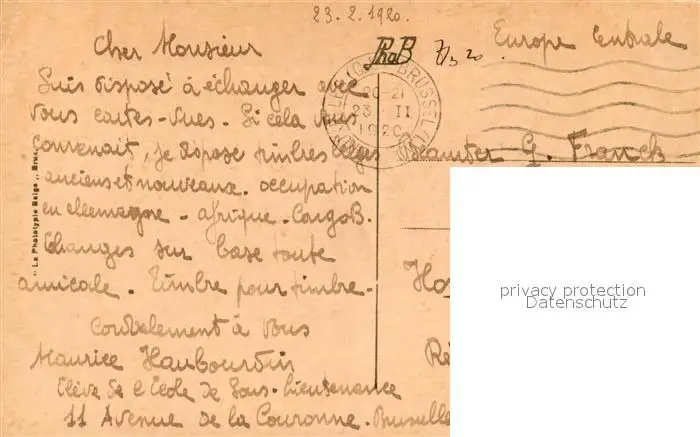 23.2.1920.
Cher Monsieur
PhoB
7/3 20.
Europe Centrale
Suis disposé à échanger avec
vous cartes-vues. Si cela vous
convenait, je dispose timbres belges
anciens et nouveaux. occupation
en allemagne - afrique - CongoB.
Echanges sur base toute
amicale. Timbre pour timbre-
Cordialement à vous
Maurice Haubourdin
Elève de l'Ecole de Sous-Lieutenance
11 Avenue de la Couronne. Bruxelle
BRUSSEL
20-21
23 II
1920
G. Franck
Ho
Ré
La Phototypie Belge
privacy protection
Datenschutz